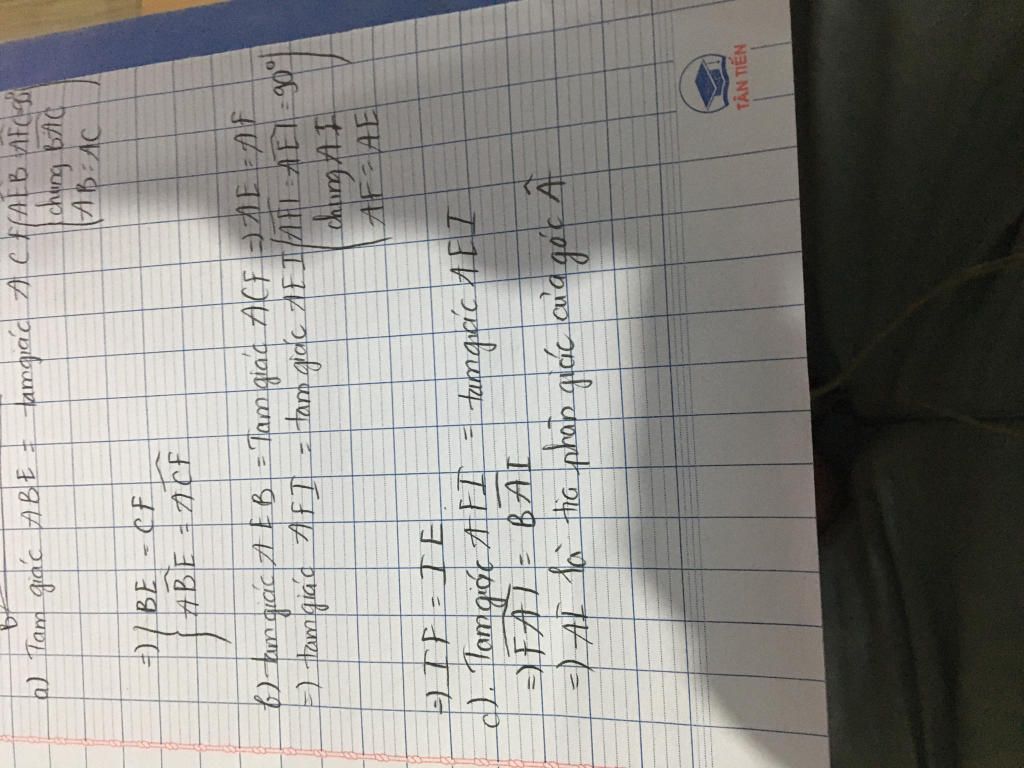 a) Tam giác ABE = tam giác ACF { AEB = AFC = 90°
chung BAC
AB = AC
=) { BE = CF
ABE = ACF
b) tam giác AEB = Tam giác ACF =) AE = AF
=) tam giác AFI = tam giác AEI { AFI = AEI = 90°
chung AI
AF = AE
=) IF = IE
c). Tam giác AFI = tam giác AEI
=) FAI = BAI
=) AI là tia phân giác của góc Â
TÂN TIẾN